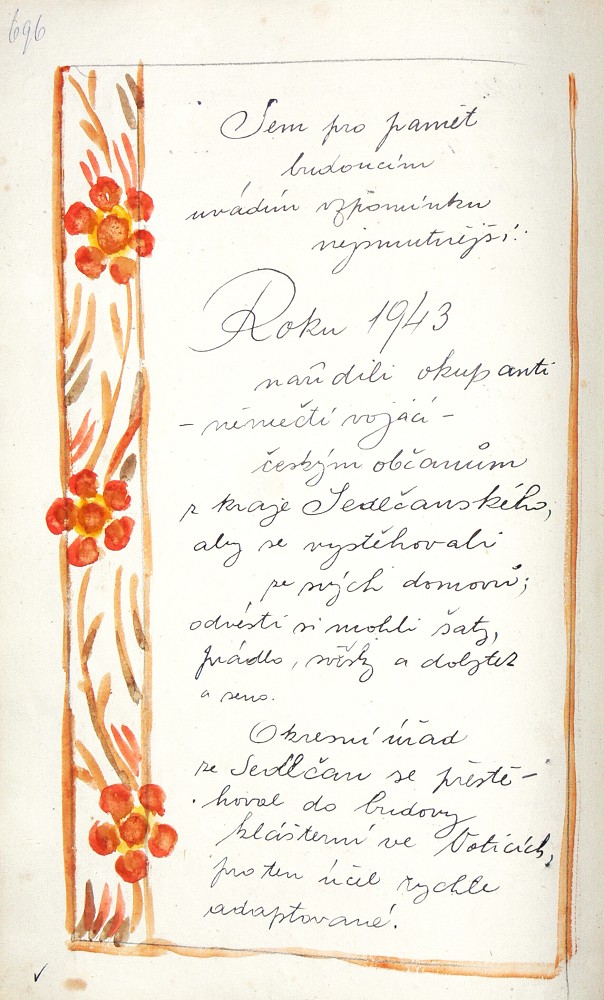 696
Sem pro pamět
budoucím
uvádím vzpomínku
nejsmutnější:
Roku 1943
nařídili okupanti
- němečtí vojáci -
českým občanům
z kraje Sedlčanského,
aby se vystěhovali
ze svých domovů;
odvésti si mohli šaty,
prádlo, svršky a dobytek
a seno.
Okresní úřad
ze Sedlčan se přestě-
hoval do budovy
klášterní ve Voticích,
pro ten účel rychle
adaptované.